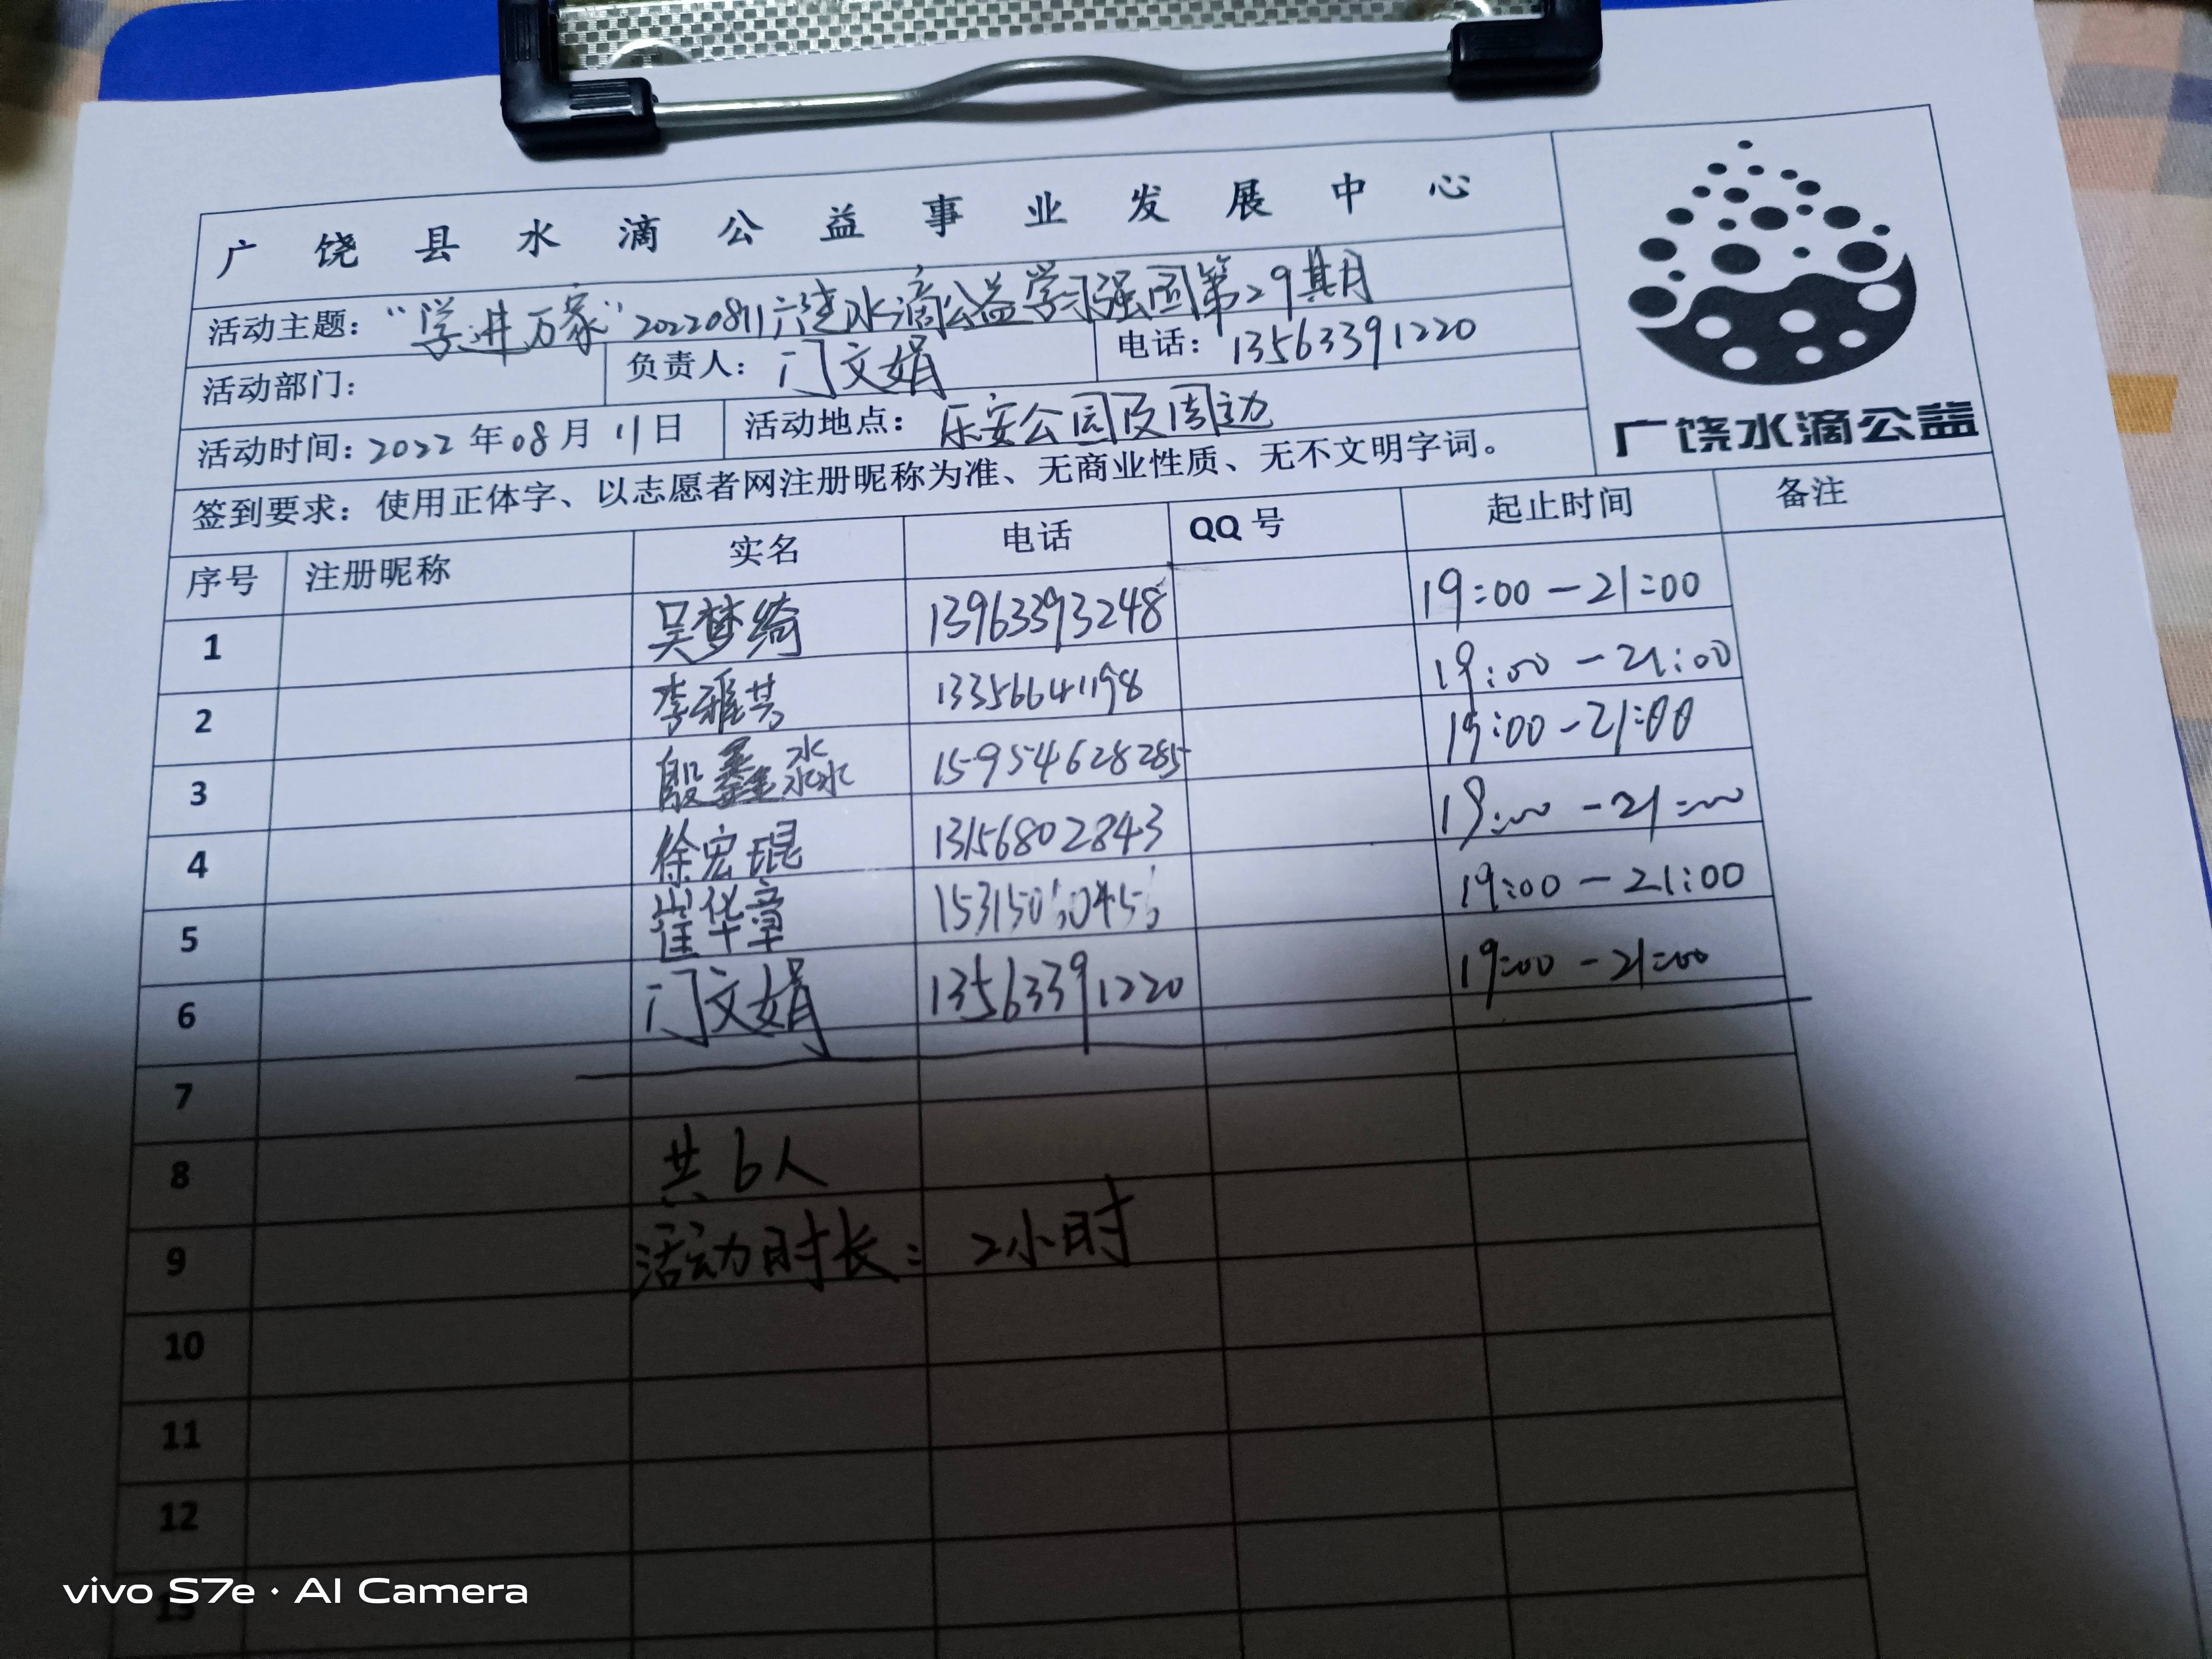 广饶县水滴公益事业发展中心
活动主题："学进万家"20220811广饶水滴公益学习强国第29期
活动部门： 负责人：门文娟 电话：13563391220
活动时间：2022年08月11日 活动地点：乐安公园及周边
广饶水滴公益
签到要求：使用正体字、以志愿者网注册昵称为准、无商业性质、无不文明字词。
序号 注册昵称 实名 电话 QQ号 起止时间 备注
1 吴梦绮 13963393248 19:00-21:00
2 李雅芸 13356641198 19:00-21:00
3 殷鑫淼 15954628285 19:00-21:00
4 徐宏琨 13156802843 19:00-21:00
5 崔华章 19:00-21:00
6 门文娟 13563391220 19:00-21:00
7
8 共6人
9 活动时长：2小时
10
11
12
13
vivo S7e · AI Camera